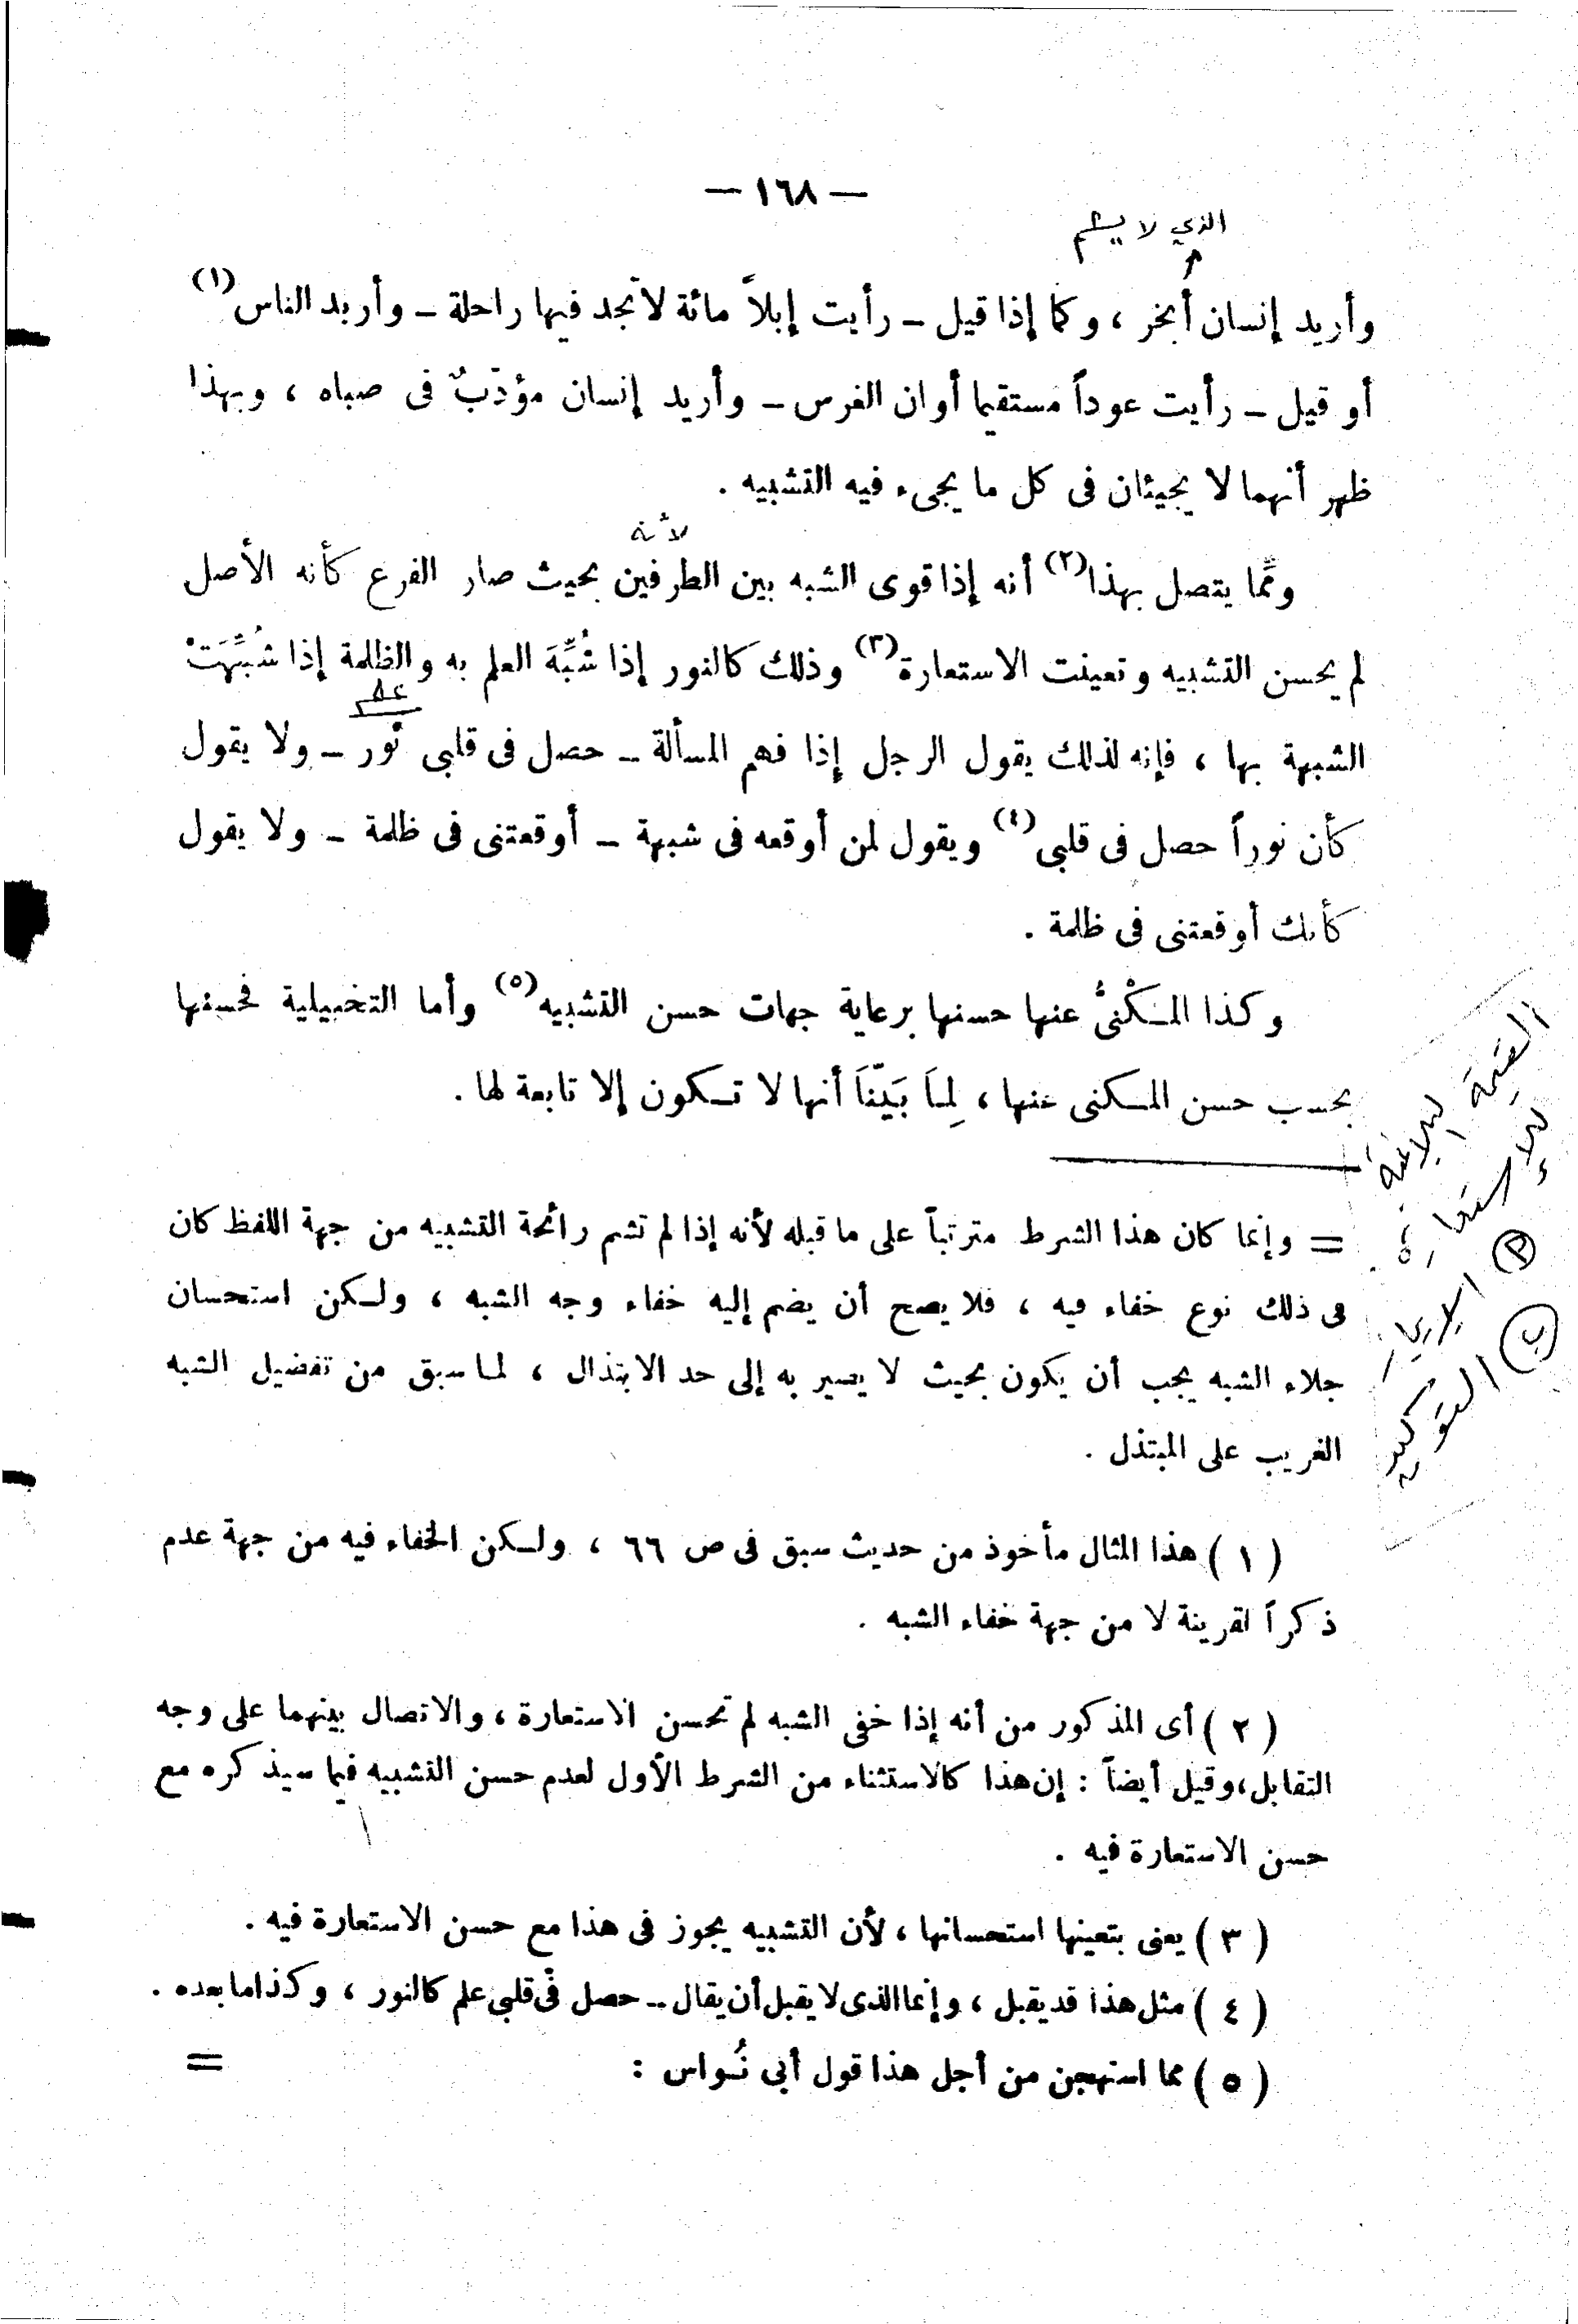 — ١٦٨ —
الذي لا يشم
وأريد إنسان أبخر ، وكما إذا قيل – رأيت إبلاً مائة لا تجد فيها راحلة – وأريد الناس (١)
أو قيل – رأيت عوداً مستقيما أوان الغرس – وأريد إنسان مؤدَّبٌ فى صباه ، وبهذا
ظهر أنهما لا يجيئان فى كل ما يجىء فيه التشبيه .
لأنه
ومما يتصل بهذا (٢) أنه إذا قوى الشبه بين الطرفين بحيث صار الفرع كأنه الأصل
لم يحسن التشبيه وتعينت الاستعارة (٣) وذلك كالنور إذا شُبِّهَ العلم به والظلمة إذا شُبِّهَتْ
الشبهة بها ، فإنه لذلك يقول الرجل إذا فهم المسألة – حصل فى قلبى نور – ولا يقول
كأن نوراً حصل فى قلبى (٤) ويقول لمن أوقعه فى شبهة – أوقعتنى فى ظلمة – ولا يقول
كأنك أوقعتنى فى ظلمة .
وكذا المكْنىُّ عنها حسنها برعاية جهات حسن التشبيه (٥) وأما التخييلية فحسنها
بحسب حسن المكنى عنها ، لِمَا بَيَّنَا أنها لا تكون إلا تابعة لها .
القيمة البلاغية
للإستعارة
التوكيد
= وإنما كان هذا الشرط مترتباً على ما قبله لأنه إذا لم تشم رائحة التشبيه من جهة اللفظ كان
فى ذلك نوع خفاء فيه ، فلا يصح أن يضم إليه خفاء وجه الشبه ، ولكن استحسان
جلاء الشبه يجب أن يكون بحيث لا يصير به إلى حد الابتذال ، لما سبق من تفضيل الشبه
الغريب على المبتذل .
( ١ ) هذا المثال مأخوذ من حديث سبق فى ص ٦٦ ، ولكن الخفاء فيه من جهة عدم
ذكر القرينة لا من جهة خفاء الشبه .
( ٢ ) أى المذكور من أنه إذا خفى الشبه لم تحسن الاستعارة ، والاتصال بينهما على وجه
التقابل ، وقيل أيضاً : إن هذا كالاستثناء من الشرط الأول لعدم حسن التشبيه فيما سيذكره مع
حسن الاستعارة فيه .
( ٣ ) يعنى بتعينها استحسانها ، لأن التشبيه يجوز فى هذا مع حسن الاستعارة فيه .
( ٤ ) مثل هذا قد يقبل ، وإنما الذى لا يقبل أن يقال – حصل فى قلبى علم كالنور ، وكذا ما بعده .
( ٥ ) مما استهجن من أجل هذا قول أبى نُواس :
=